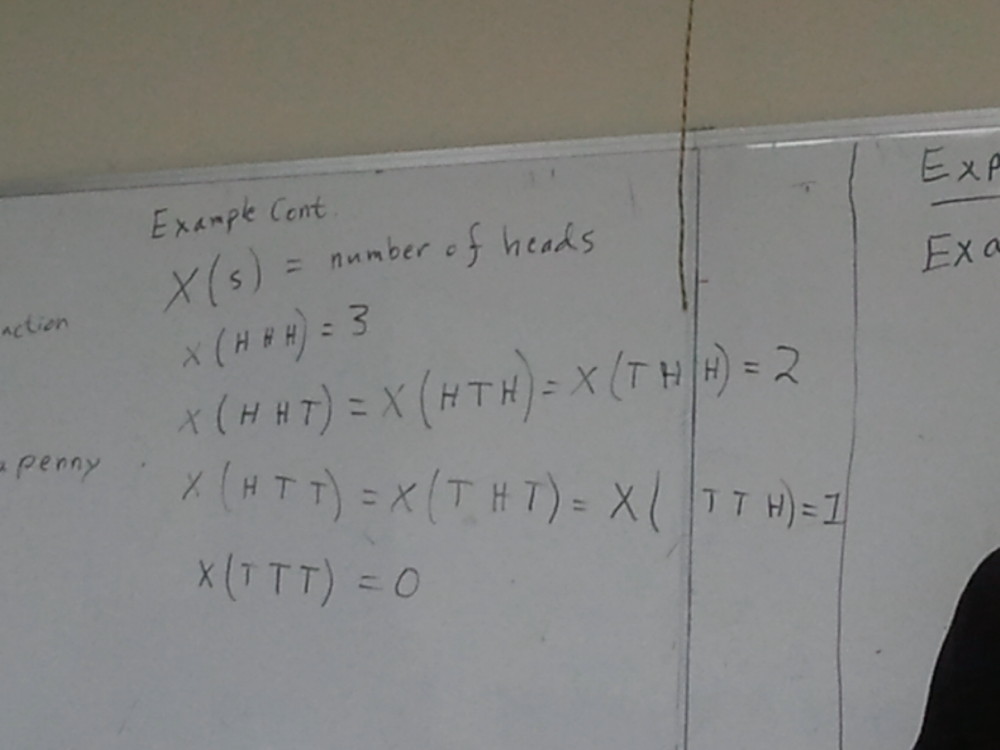 Example Cont.
X(s) = number of heads
X(HHH) = 3
X(HHT) = X(HTH) = X(THH) = 2
X(HTT) = X(THT) = X(TTH) = 1
X(TTT) = 0
action
penny
Exp
Exa